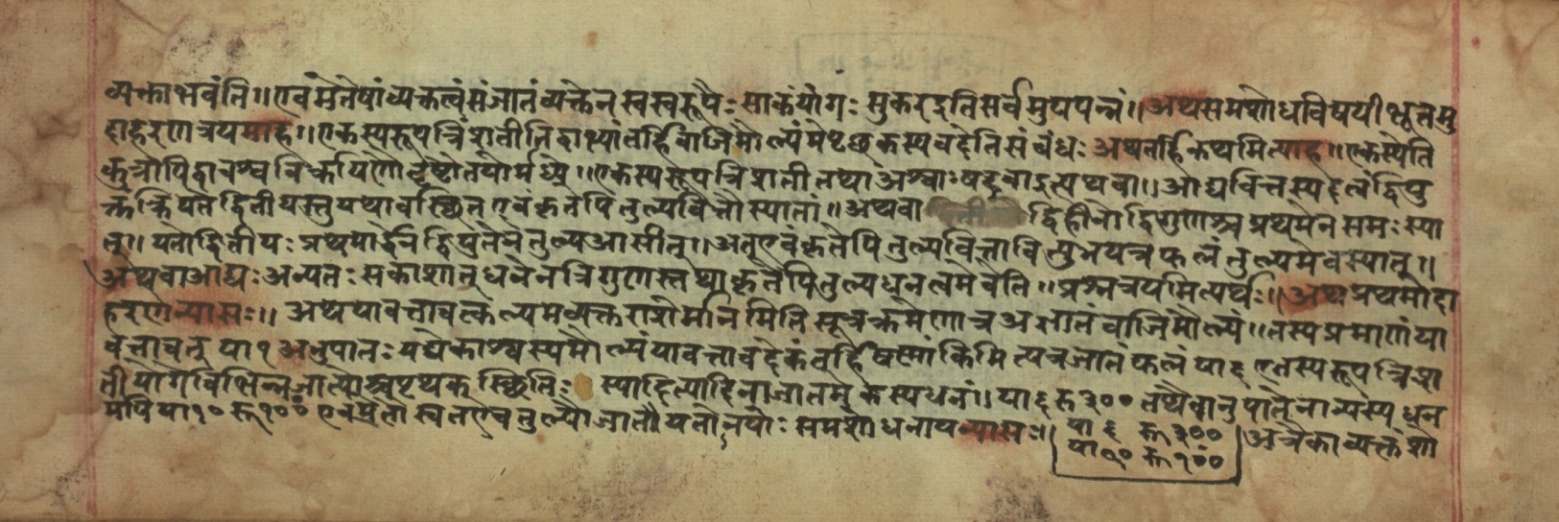 व्यक्ताभवंति॥एवंमेतेषांव्यक्तत्वंसंजातंव्यक्तेन्स्वस्वरूपैःसाकंयोगःसुकरइतिसर्वमुपपन्नं॥अथसमशोधविषयीभूतमु
दाहरणत्रयमाह॥एकस्यरूपत्रिंशतीतिद्वाभ्यांतर्हिवाजिमौल्यंमेपृछकस्यवदेतिसंबंधःअथतर्हिकथमित्याह॥एकस्येति
कुत्रापिद्वावश्वविक्रयिणौदृष्टौतयोर्मध्ये॥एकस्यरूपत्रिशतीतथाअश्वाःषट्वाइत्यथवा॥आद्यवित्तस्यदलंद्वियु
क्तंक्रियतेद्वितीयस्तुयथावस्थितएवंकृतेपितुल्यवित्तौस्यातां॥अथवा द्विहीनोद्विगुणाश्चप्रथमेनसमःस्या
त्॥यतोद्वितीयःप्रथमार्द्धेनद्वियुतेनतुल्यआसीत्॥अतएवंकृतेपितुल्यवित्ताविसुभयत्रफलंतुल्यमेवस्यात्॥
अथवाआद्यःअन्यतःसकाशात्धनेनत्रिगुणस्तथाकृतेपितुल्यधनत्वमेवेति॥प्रश्नत्रयमित्यर्थः॥अथप्रथमोदा
हरणन्यासः॥अथयावत्तावत्कल्प्यमव्यक्तराशेर्मानमितिसूत्रक्रमेणात्रअज्ञातंवाजिमौल्यं॥तस्यप्रमाणंया
वत्तावत्या१अनुपातःयद्येकाश्वस्यमौल्यंयावत्तावदेकंतर्हिषण्णांकिमित्यत्रजातंफलंया६एतस्यरूपत्रिश
तीयोगेविभिन्नजात्योश्चपृथक्स्थितिः स्यादित्यादिनाजातमेकस्यधनं॥या६रू३००तथैवानुपातेनान्यस्यधन
मपिया१०रू१०० एवमेतौस्वतएवतुल्यौजातौयतोनयोःसमशोधनायन्यासः॥ या६ रू३०० अत्रैकाव्यक्तंशो
या१० रू१००